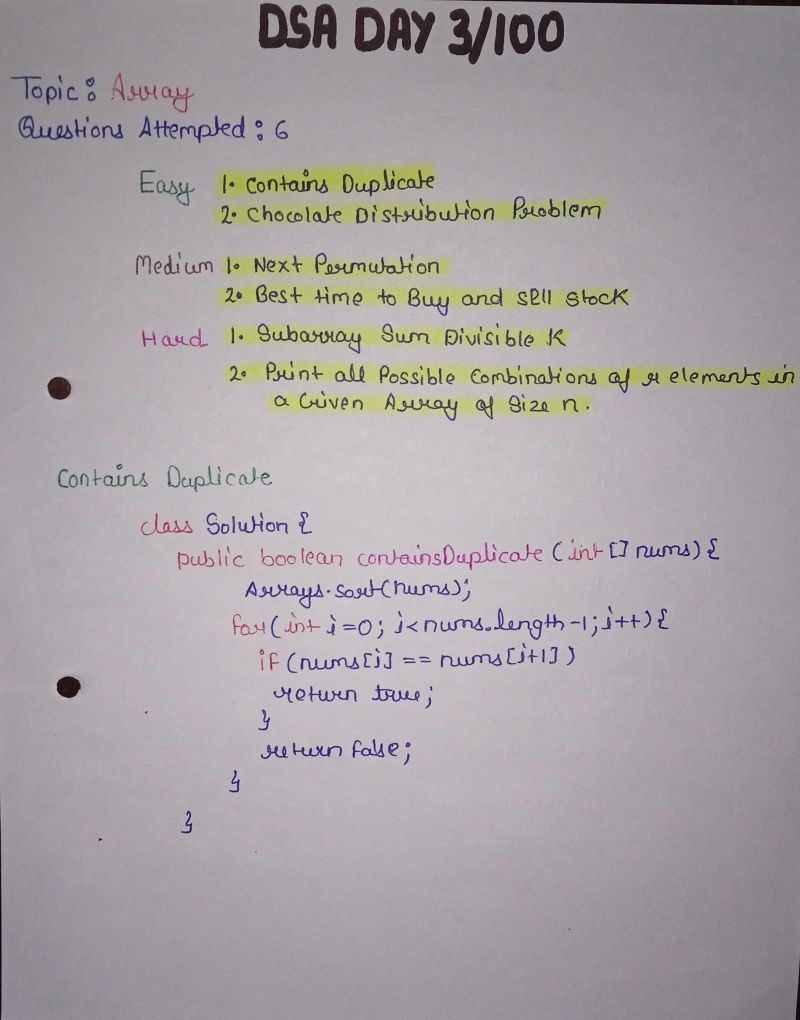 DSA DAY 3/100
Topic: Array
Questions Attempted: 6
Easy 1. Contains Duplicate
2. Chocolate Distribution Problem
Medium 1. Next Permutation
2. Best time to Buy and sell stock
Hard 1. Subarray Sum Divisible K
2. Print all Possible Combinations of r elements in
a Given Array of Size n.
Contains Duplicate
class Solution {
public boolean containsDuplicate (int [] nums) {
Arrays.sort(nums);
for(int i=0; i<nums.length-1; i++) {
if (nums[i] == nums[i+1])
return true;
}
return false;
}
}